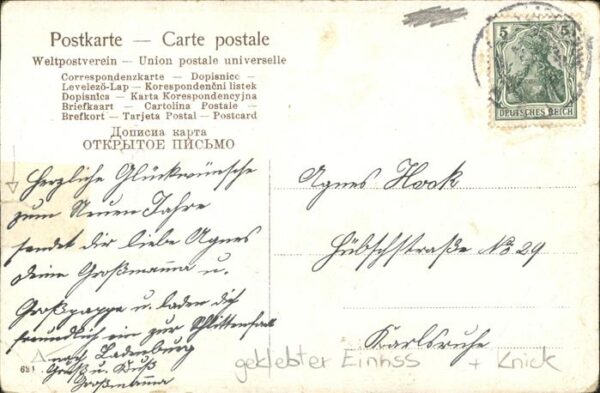 Postkarte — Carte postale
Weltpostverein — Union postale universelle
Correspondenzkarte — Dopisnice —
Levelező-Lap — Korespondenční listek
Dopisnica — Karta Korespondencyjna
Briefkaart — Cartolina Postale —
Brefkort — Tarjeta Postal — Postcard
Дописна карта
ОТКРЫТОЕ ПИСЬМО
5 5
DEUTSCHES REICH
Herzliche Glückwünsche
zum Neuen Jahre
sendet dir liebe Agnes
deine Großmama u.
Großpappa u. laden dich
freundlich ein zur Schlittenfahrt
nach Ladenburg
Gruß u. Kuß
Großmama
Agnes Hook
Hübschstraße No 29
Karlsruhe
geklebter Einriss + Knick